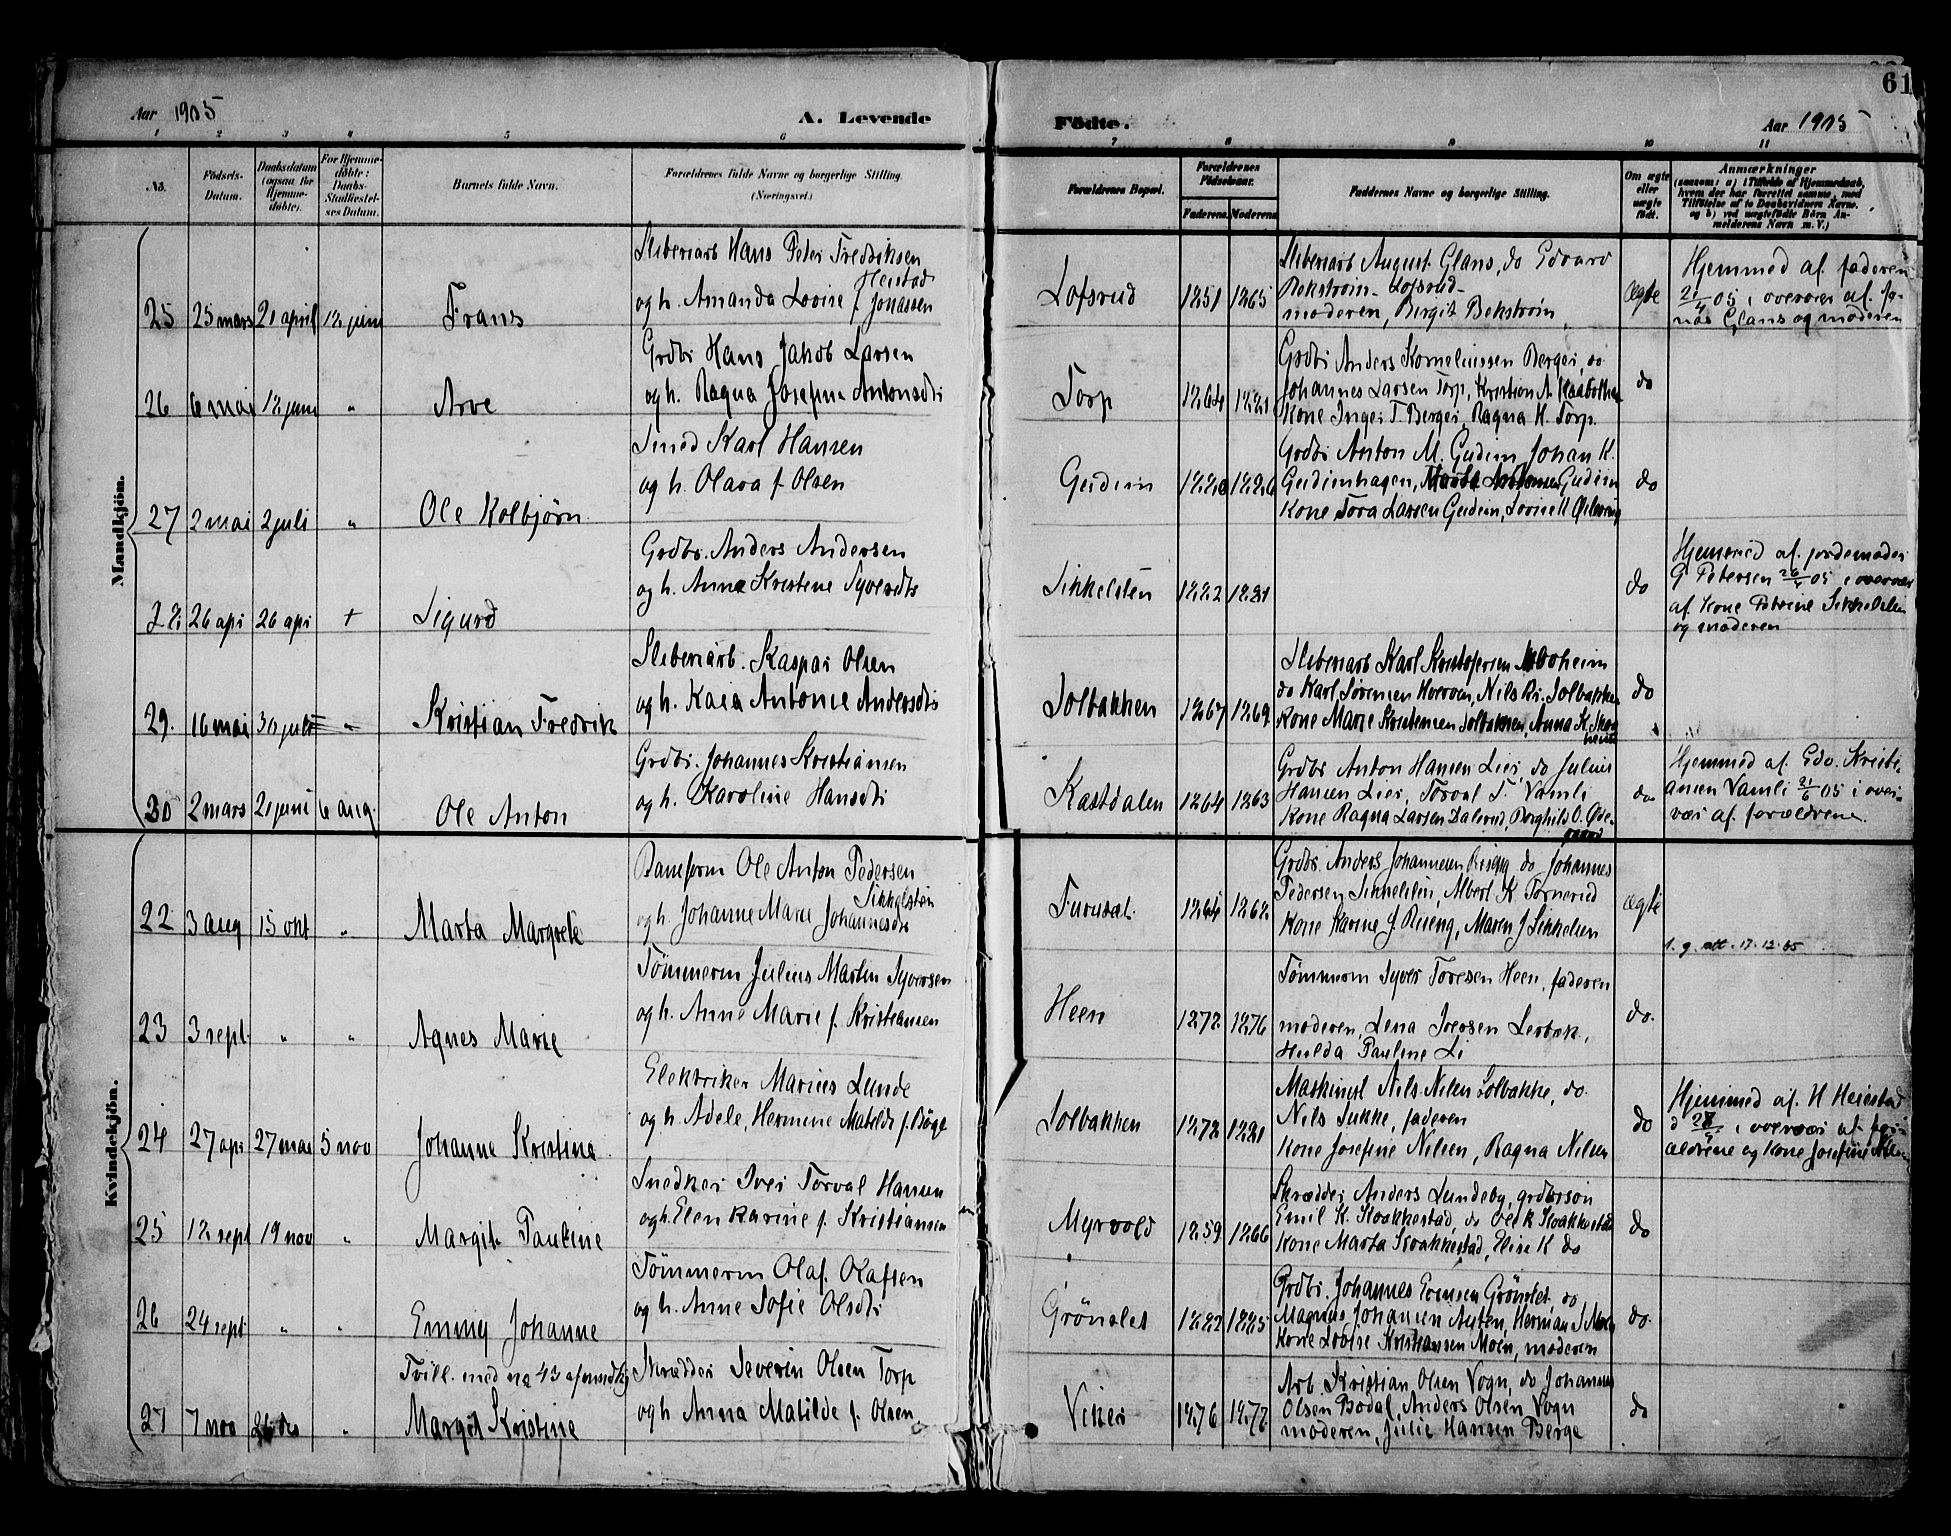 61
Aar 1905
A. Levende
Födte.
Aar 1905
1 2 3 4 5 6 7 8 9 10 11
No.
Födsels-
Datum.
Daabsdatum
(ogsaa for
Hjemme-
döbte).
For Hjemme-
döbte:
Daabs-
Stadfæstel-
ses Datum.
Barnets fulde Navn.
Forældrenes fulde Navne og borgerlige Stilling.
(Næringsvei.)
Forældrenes Bopæl.
Forældrenes
Födselsaar.
Faderens. Moderens
Faddernes Navne og borgerlige Stilling.
Om ægte
eller
uægte
født.
Anmærkninger
(saasom: a) i Tilfælde af Hjemmedaab,
hvem der har forrettet samme, med
Tilföielse af to Daabsvidners Navne,
og b) ved uægtefödte Börn An-
melderens Navn m. V.)
Mandkjön.
25 25 mars 21 april 12 juni Frans
Sliberiarb Hans Peter Fredriksen
Heistad
og h. Amanda Lovise f. Jonassen
Lofsrud 1851 1865
Sliberiarb August Glans, do Edvard
Bekstrøm- Lofsrud-
moderen, Birgit Bekstrøm
Ægte
Hjemmed af faderen
21/4 05 i overvær af Jo-
nas Glans og moderen
26 6 mai 12 juni " Arve
Grdbr Hans Jakob Larsen
og h. Ragna Josefine Antonsdtr
Torp 1864 1881
Grdbr Anders Korneliussen Berger, do
Johannes Larsen Torp, Kristian A.
Kone Inger T. Berger, Ragna H. Torp.
do
27 2 mai 2 juli " Ole Kolbjørn
Smed Karl Hansen
og h. Olava f. Olsen
Gudim
Grdbr Anton M. Gudim, Johan K.
Gudimhagen, Gudim
Kone Tora Larsen Gudim, Lovise H
do
28. 26 apr 26 apr + Sigurd
Grdbr. Anders Andersen
og h. Anna Kristine Syversdtr
Sikkelsten 1882 1881
do
Hjemmed af jordemoder
G Petersen 26/4 05 i overvær
af Kone Petrine Sikkelsten
og moderen
29. 16 mai 30 juli " Kristian Fredrik
Sliberiarb. Kaspar Olsen
og h. Kaia Antonie Andersdtr
Solbakken 1867 1869
Sliberiarb Karl Kristofersen Moheim
do Karl Sørensen Hverven, Nils Kr. Solbakken
Kone Marie Kristensen Solbakken, Anna K.
do
30 2 mars 21 juni 6 aug. Ole Anton
Grdbr. Johannes Kristiansen
og h. Karoline Hansdtr
Kastdalen 1864 1863
Grdbr Anton Hansen Lier, do Julius
Hansen Lier, Torval T. Vamli
Kone Ragna Larsen Dalerud, Borghild O. Øde-
gaard
do
Hjemmed af Edv. Kristi-
ansen Vamli 21/6 05 i over-
vær af forældrene.
Kvindekjön.
22 3 aug 15 okt " Marta Margrete
Baneform Ole Anton Pedersen
Sikkelsten
og h. Johanne Marie Johannesdtr
Furusat. 1864 1862
Grdbr Anders Johannesen Riseng do Johannes
Pedersen Sikkelsten, Albert K Tornerud
Kone Karine J. Riseng, Maren J Sikkelsten
ægte
1. g. att. 17.12.65
23 3 sept " " Agnes Marie
Tømmerm Julius Martin Syversen
og h. Anne Marie f. Kristiansen
Heen 1872 1876
Tømmerm Syver Toresen Heen, faderen
moderen, Lena Iversen Lerbak,
Hulda Pauline Li
do.
24 27 apr 27 mai 5 nov Johanne Kristine
Elektriker Marius Lunde
og h. Adele, Hermine Matilde f. Bøge
Solbakken 1872 1881
Maskinist Nils Nilsen Solbakke, do.
Nils Sukke, faderen
Kone Josefine Nilsen, Ragna Nilsen
do
Hjemmed af H Heiestad
i overvær af for-
ældrene og Kone Josefine Nilsen
25 12 sept 19 nov " Margit Pauline
Snedker Iver Torval Hansen
og h. Elen Karine f. Kristiansen
Myrvold 1859 1866
Skrædder Anders Lundeby, grdbrsøn
Emil K. Kloakkestad, do Ole K Kloakkestad
Kone Marta Kloakkestad, Elise K do
do
26 24 sept " " Emmy Johanne
Tømmerm Olaf Olafsen
og h. Anne Sofie Olsdtr
Grönslet 1882 1885
Grdbr. Johannes Evensen Grønslet, do
Magnus Johansen Asken, Herman J Moen
Kone Lovise Kristiansen Moen, moderen
do.
Tvill. med no 43
27 7 nov 26 des " Margit Kristine
Skrædder Severin Olsen Torp
og h. Anna Matilde f. Olsen
Viker 1876 1877
Arb. Kristian Olsen Vogn, do Johannes
Olsen Bodal, Anders Olsen Vogn
moderen, Julie Hansen Berge
do